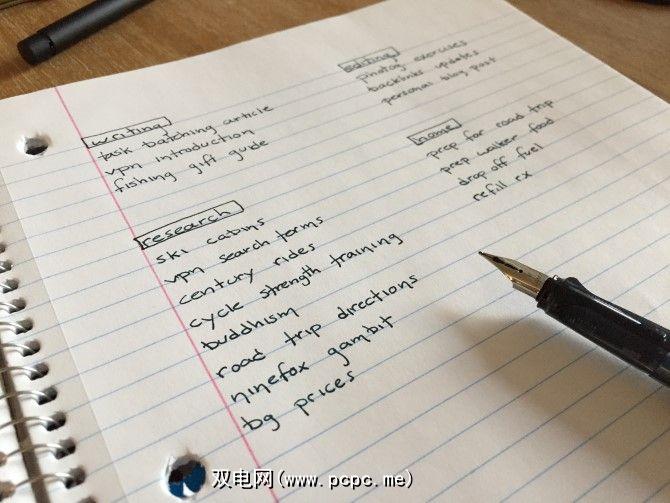 writing
task batching article
vpn introduction
fishing gift guide
research
ski cabins
vpn search terms
century rides
cycle strength training
buddhism
road trip directions
ninefox gambit
bg prices
editing
photog exercises
backlinks updates
personal blog post
home
prep for road trip
prep walker food
drop off fuel
refill rx
双电网(www.pcpc.me)